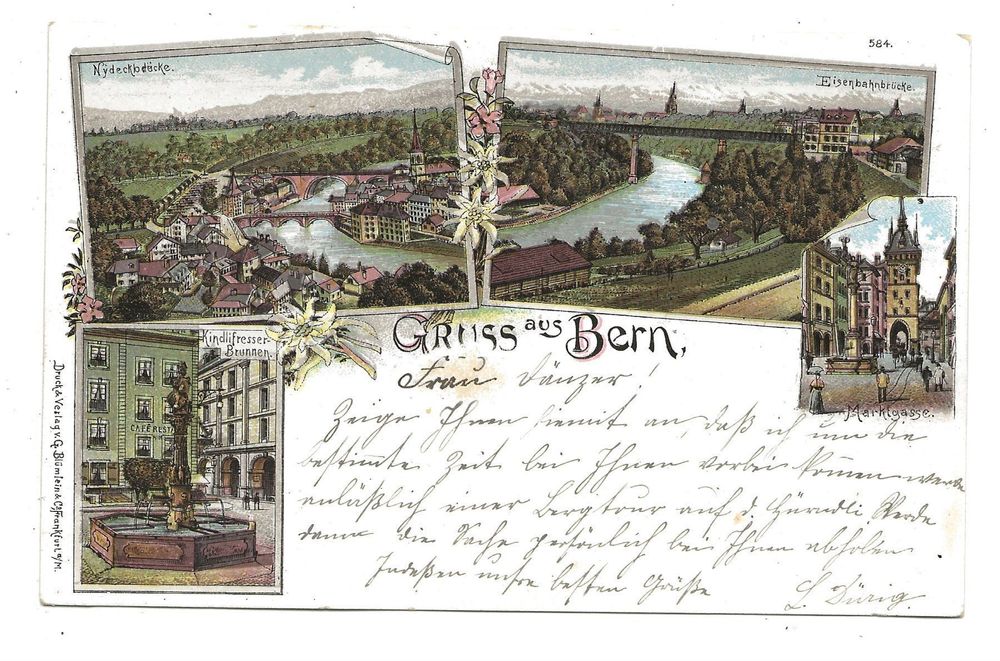 584.
Nydeckbrücke.
Eisenbahnbrücke.
Kindlifresser-
Brunnen.
CAFÉ REST
Marktgasse.
Gruss aus Bern,
Frau Dänzer!
Zeige Ihnen hiemit an, daß ich um die
bestimmte Zeit bei Ihnen vorbei kommen werde
anläßlich einer Bergtour auf d. Hürndli. Werde
dann die Sache persönlich bei Ihnen abholen
Indeßen unsre besten Grüße
L. Dürig.
Druck & Verlag v. G. Blümlein & Co Frankfurt a/M.